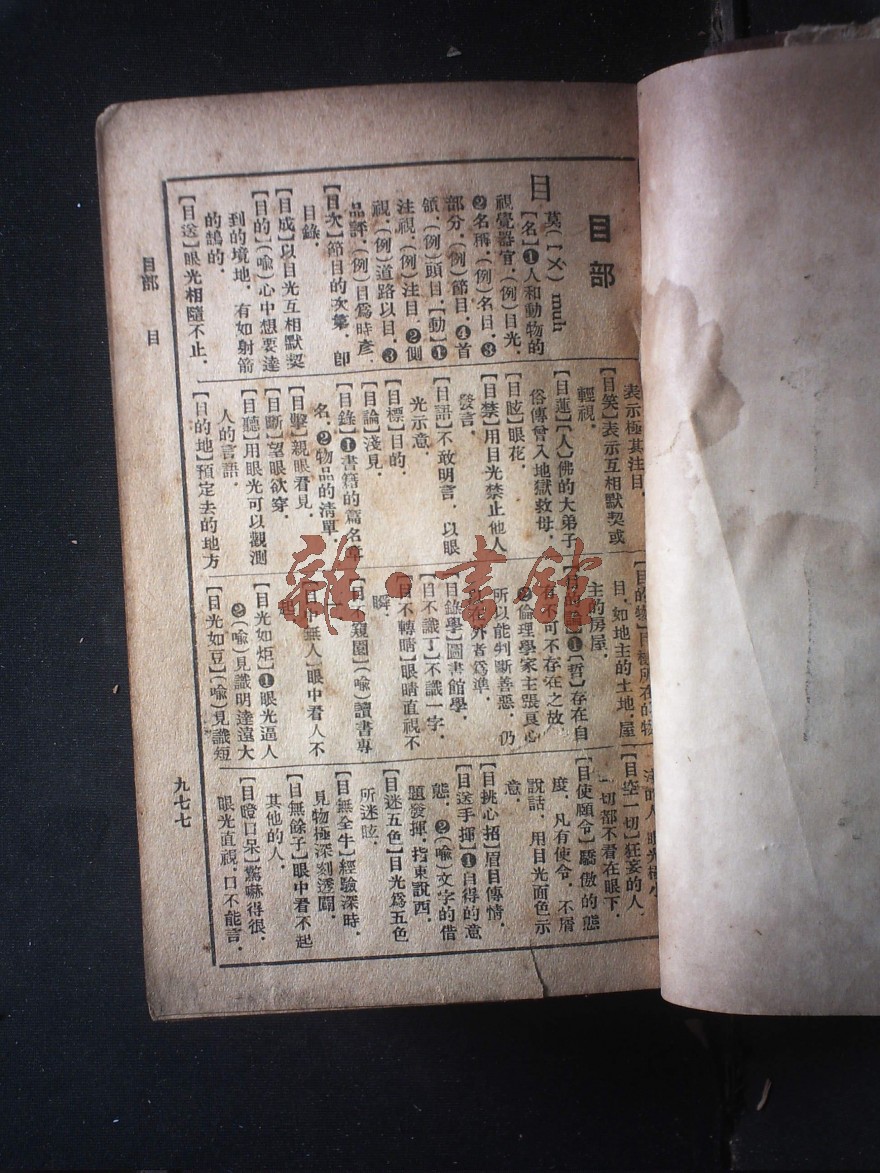 目部
目
莫(ㄇㄨ) muh
【名】❶人和動物的
視覺器官．(例)目光．
❷名稱．(例)名目．❸
部分．(例)節目．❹首
領．(例)頭目．【動】❶
注視．(例)注目．❷側
視．(例)道路以目．❸
品評．(例)目爲時彥．
【目次】節目的次第．卽
目錄．
【目成】以目光互相默契
【目的】(喩)心中想要達
到的境地．有如射箭
的鵠的．
【目送】眼光相隨不止．
表示極其注目．
【目笑】表示互相默契或
輕視．
【目蓮】【人】佛的大弟子
俗傳曾入地獄救母．
【目眩】眼花．
【目禁】用目光禁止他人
發言．
【目語】不敢明言．以眼
光示意．
【目標】目的．
【目論】淺見．
【目錄】❶書籍的篇名章
名．❷物品的清單．
【目擊】親眼看見．
【目斷】望眼欲穿．
【目聽】用眼光可以觀測
人的言語．
【目的地】預定去的地方
目．如地主的土地．屋
主的房屋．
【目的論】❶【哲】存在自
有不可不存在之故．
❷倫理學家主張良心
所以能判斷善惡．仍
在外者爲準．
【目錄學】圖書館學．
【目不識丁】不識一字．
【目不轉睛】眼睛直視不
瞬．
【目不窺園】(喩)讀書專
【目中無人】眼中看人不
起．
【目光如炬】❶眼光逼人
❷(喩)見識明達遠大
【目光如豆】(喩)見識短
【目空一切】狂妄的人．
一切都不看在眼下．
【目使頤令】驕傲的態
度．凡有使令．不屑
說話．用目光面色示
意．
【目挑心招】眉目傳情．
【目送手揮】❶自得的意
態．❷(喩)文字的借
題發揮．指東說西．
【目迷五色】目光爲五色
所迷眩．
【目無全牛】經驗深時．
見物極深刻透闢．
【目無餘子】眼中看不起
其他的人．
【目瞪口呆】驚嚇得很．
眼光直視．口不能言．
目部
目
九七七
雜·書館